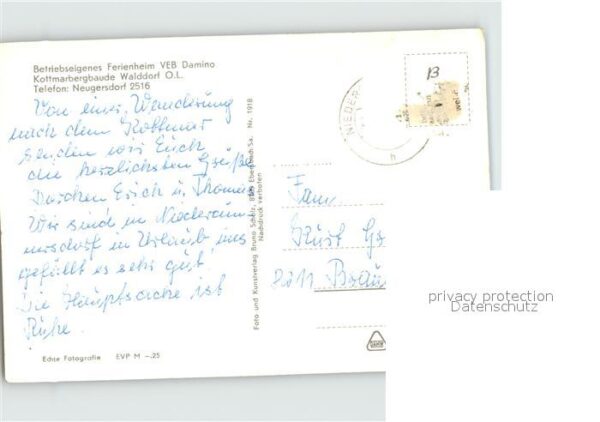 Betriebseigenes Ferienheim VEB Damino
Kottmarbergbaude Walddorf O.L.
Telefon: Neugersdorf 2516
Von einer Wanderung
nach dem Kottmar
senden wir Euch
die herzlichsten Grüße
Erich u. Thomas
Wir sind in Niedercun-
nersdorf in Urlaub, uns
gefällt es sehr gut,
die Hauptsache ist
Ruhe.
Echte Fotografie EVP M -.25
Foto und Kunstverlag Bruno Scholz, Ebersbach Sa. Nr. 1918
Nachdruck verboten
13
NIEDER
h
Fam.
Kurt
privacy protection
Datenschutz